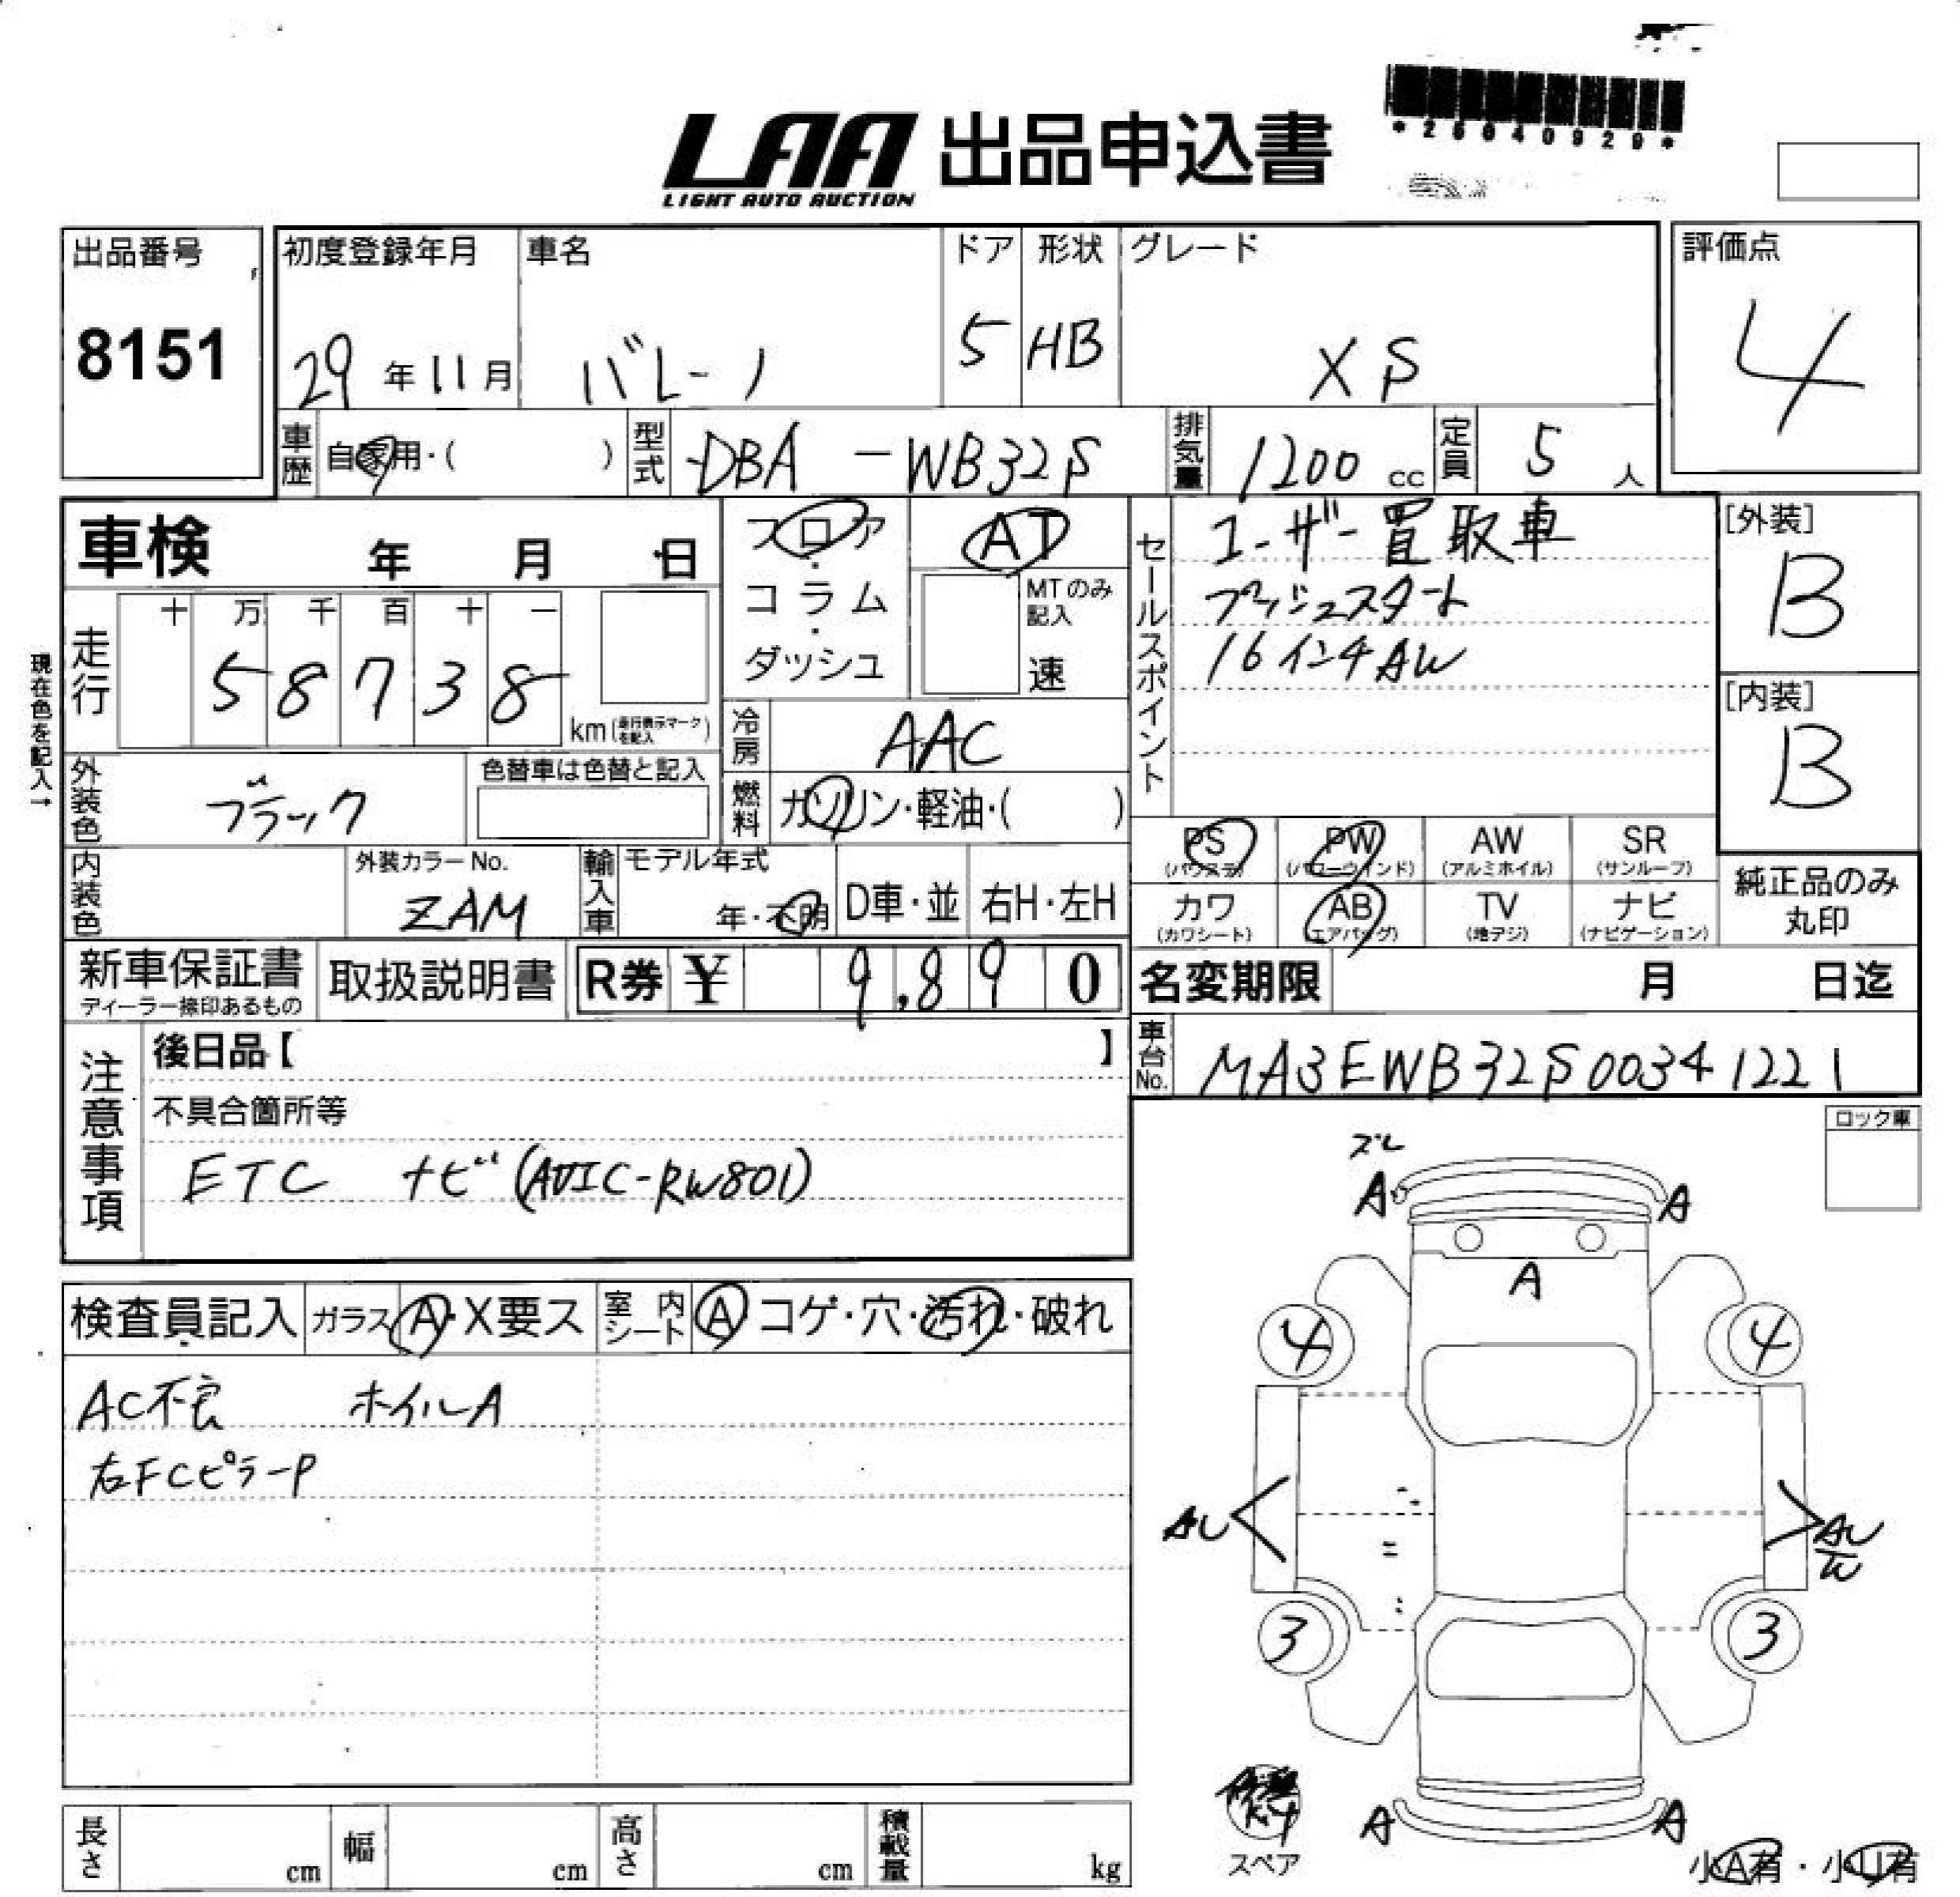 *26040929*
LAA 出品申込書
LIGHT AUTO AUCTION
出品番号
8151
初度登録年月
29年11月
車名
バレーノ
ドア
5
形状
HB
グレード
XS
評価点
4
車歴 自家用・( )
型式 DBA-WB32S
排気量 1200cc
定員 5人
車検 年 月 日
走行
十 万 千 百 十 一
5 8 7 3 8
km(走行表示マークを記入)
現在色を記入→
外装色 ブラック
色替車は色替と記入
内装色
外装カラーNo.
ZAM
輸入車
モデル年式
年・不明
D車・並
右H・左H
フロア・コラム・ダッシュ
AT
MTのみ記入
速
冷房 AAC
燃料 ガソリン・軽油・( )
セールスポイント
ユーザー買取車
プッシュスタート
16インチAW
[外装]
B
[内装]
B
PS (パワステ)
PW (パワーウインド)
AW (アルミホイル)
SR (サンルーフ)
カワ (カワシート)
AB (エアバッグ)
TV (地デジ)
ナビ (ナビゲーション)
純正品のみ丸印
新車保証書
ディーラー捺印あるもの
取扱説明書
R券 ¥ 9,890
名変期限 月 日迄
車台No. MA3EWB32S00341221
注意事項
後日品【 】
不具合箇所等
ETC ナビ(AVIC-RW801)
ロック車
検査員記入
ガラス A・X要ス
室内シート A・コゲ・穴・汚れ・破れ
AC不良 ホイルA
右FCピラーP
ズレ
A A
A
4 4
AU AU
W
3 3
A A
スペア
小A有・小U有
長さ cm
幅 cm
高さ cm
積載量 kg